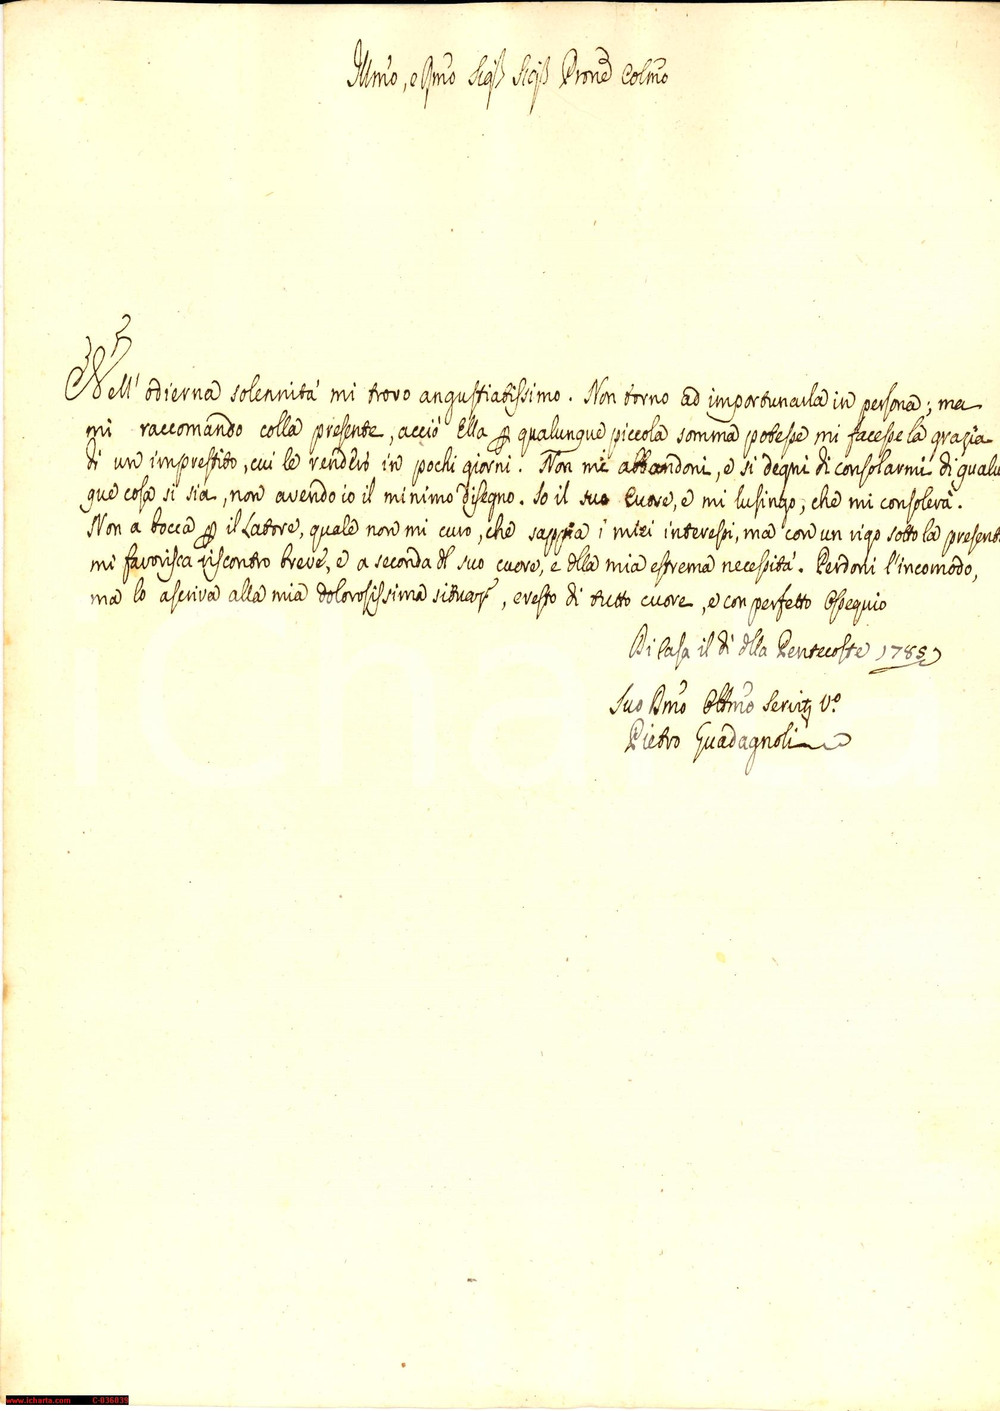 Illmo, e Pmo Sigr Sigr Prone Colmo
Nell' odierna solennità mi trovo angustiatissimo. Non torno ad importunarla in persona; ma
mi raccomando colla presente, acciò Ella p qualunque piccola somma potesse mi facesse la grazia
di un imprestito, cui le renderò in pochi giorni. Non mi abbandoni, e si degni di consolarmi di qualu
que cosa si sia, non avendo io il minimo disegno. So il suo Cuore, e mi lusingo, che mi consolerà.
Non a bocca p il Latore, quale non mi curo, che sappia i miei interessi, ma con un vigo sotto la present
mi favorisca riscontro breve, e a seconda del suo cuore, e della mia estrema necessità. Perdoni l'incomodo,
ma lo ascriva alla mia dolorosissima situaz, e resto di tutto cuore, e con perfetto Ossequio
Di Casa il dì della Pentecoste 1785
Suo Dmo Obbmo Servit Vo
Pietro Guadagnoli
iCharta
www.icharta.com C-036839